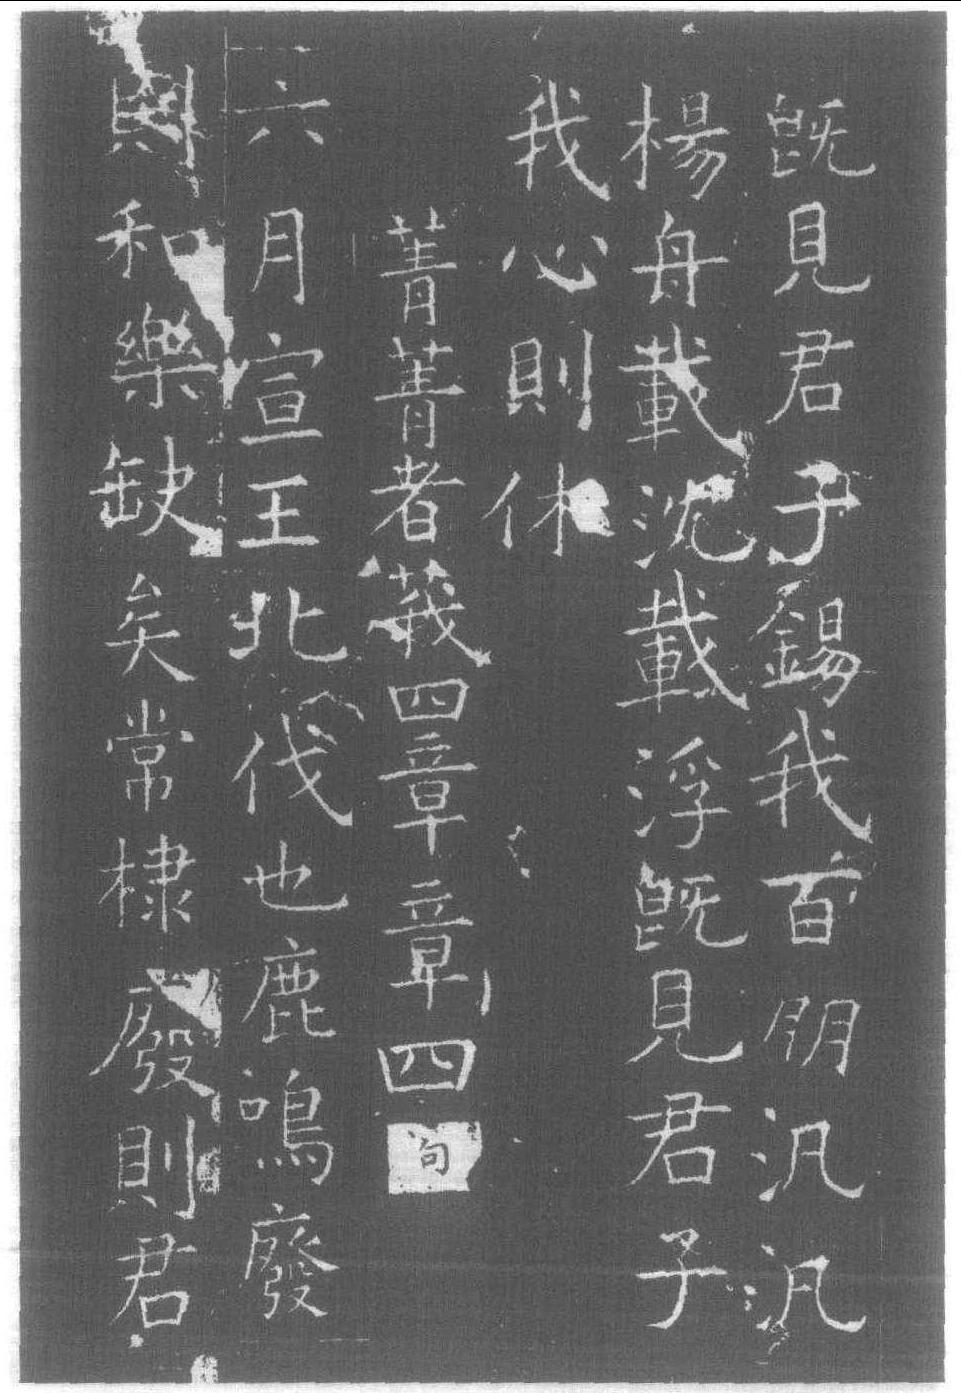 既見君子錫我百朋汎汎
楊舟載沈載浮既見君子
我心則休
菁菁者莪四章章四句
六月宣王北伐也鹿鳴廢
則和樂缺矣常棣廢則君